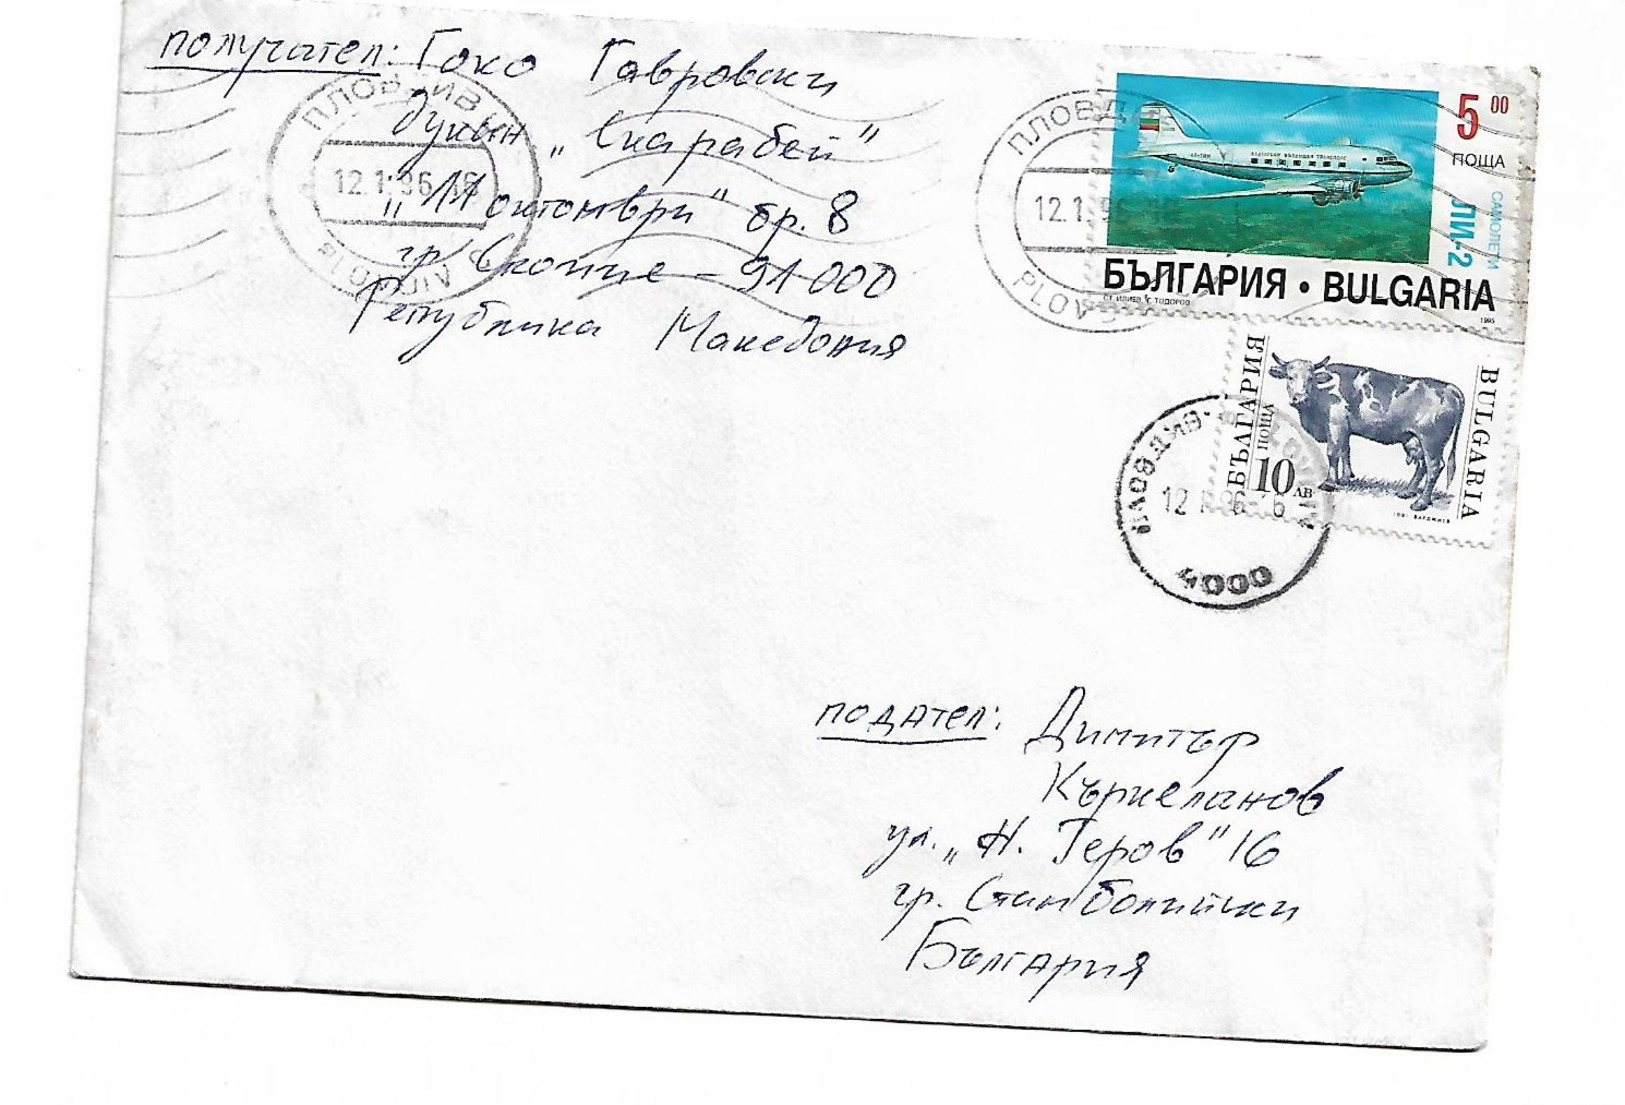 получател: Гоко Гавровски
дукян „Скарабей"
"11 октомври" бр. 8
гр. Скопие - 91000
Република Македония
ПЛОВДИВ
12.1.96 16
PLOVDIV C
ПЛОВДИВ
12.1.96
PLOVDIV C
5 00
ПОЩА
САМОЛЕТИ
ЛИ-2
БЪЛГАРИЯ • BULGARIA
СТ. ИЛИЕВ, С. ТОДОРОВ
1995
БЪЛГАРИЯ
ПОЩА
10 ЛВ
BULGARIA
ПЛОВДИВ
4000
подател: Димитър
Къркеланов
ул. „Н. Геров" 16
гр. Стамболийски
България